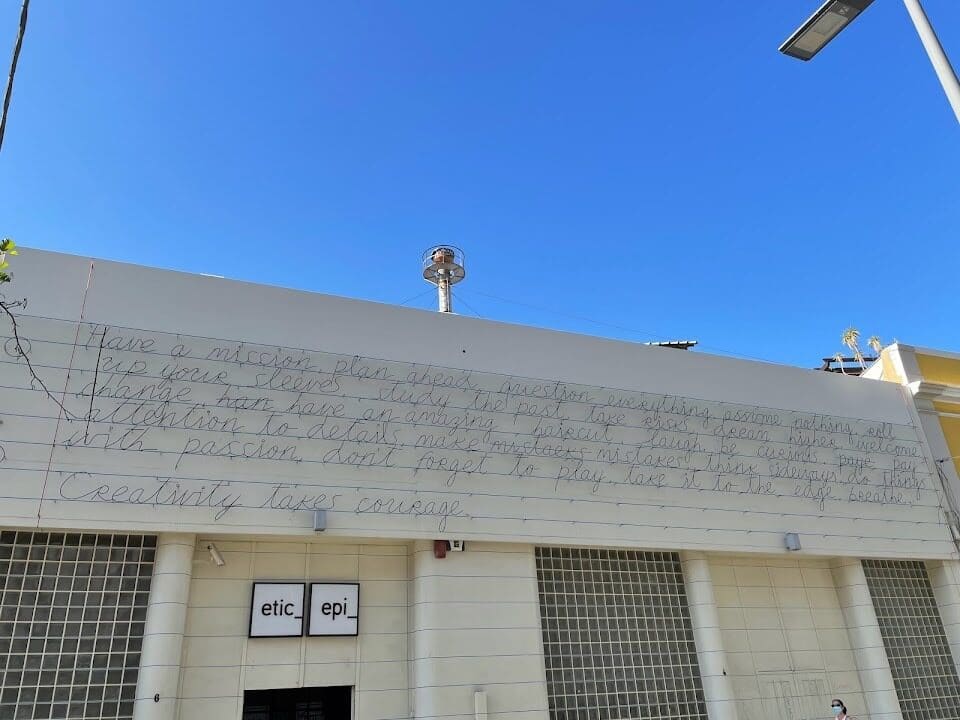 Have a mission plan ahead, question everything, assume nothing, roll
up your sleeves, study the past, take risks, dream higher, welcome
change, han have an amazing haircut, laugh, be curious, paye pay
attention to details, make mistacks mistakes!, think sideways, do things
with passion, don't forget to play, take it to the edge, breathe.
Creativity takes courage.
etic_
epi_
6